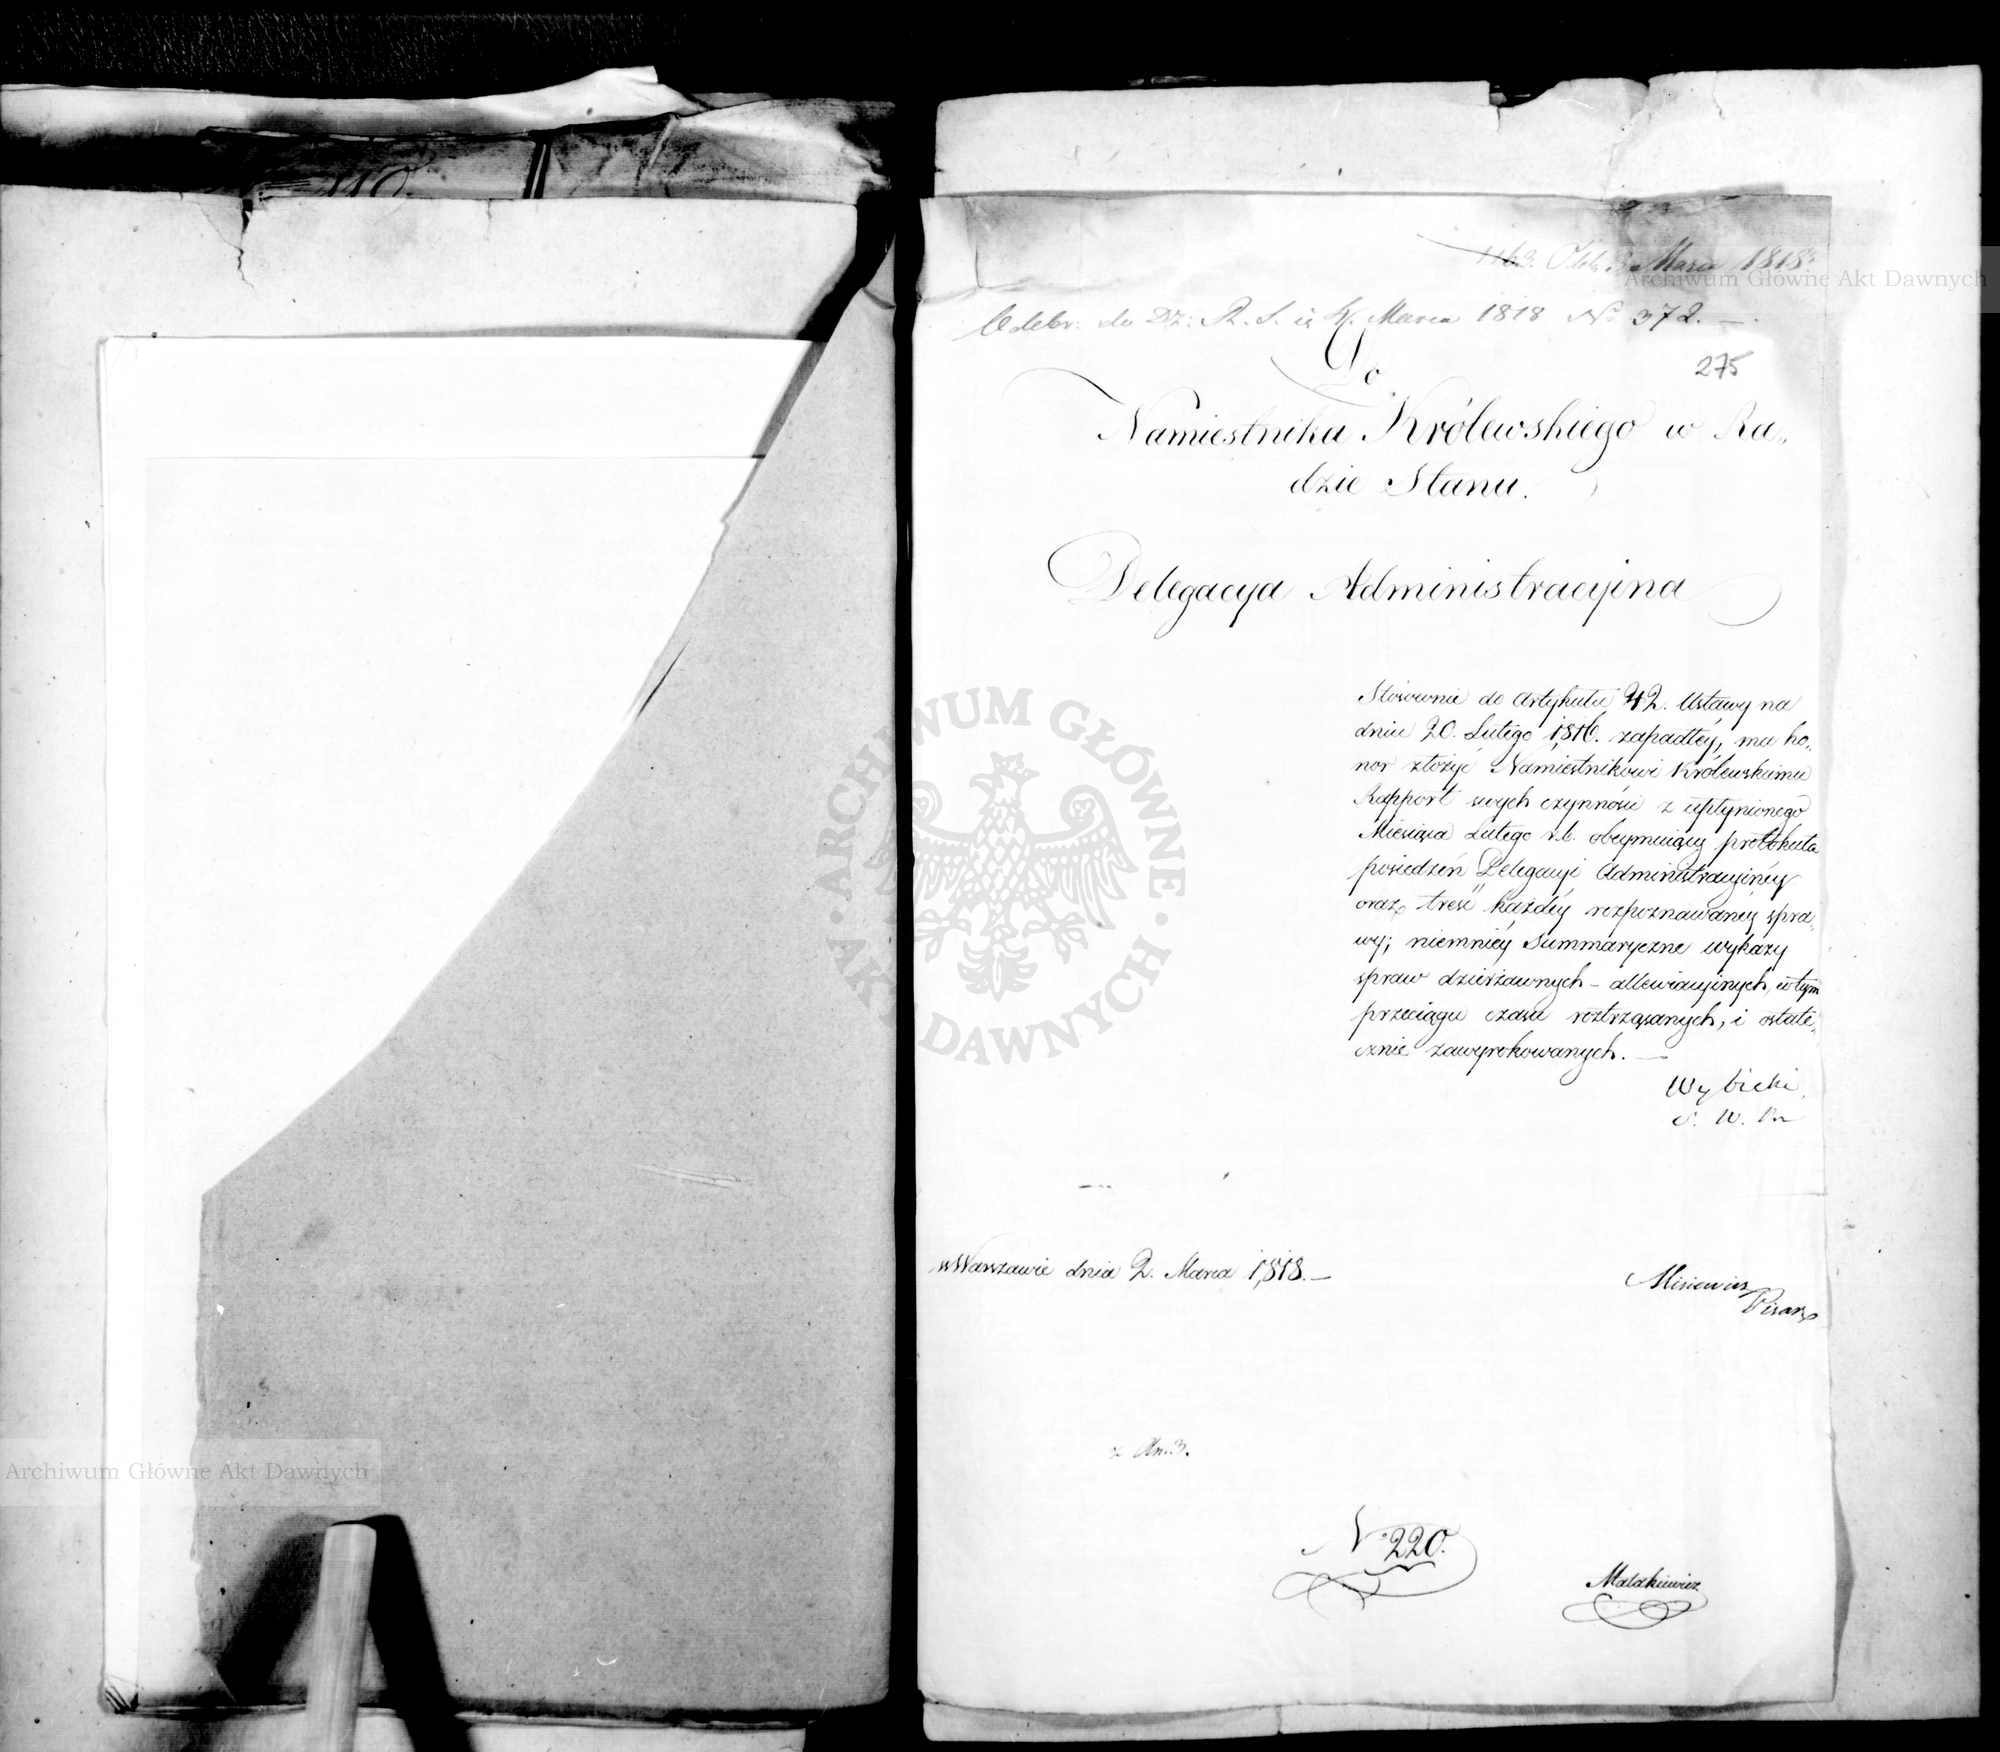 110.
1163. Odebr. 3 Marca 1818
Odebr: do Dz: R. S. is 4. Marca 1818 No 372. —.
275
Do
Namiestnika Królewskiego w Ra„
dzie Stanu.
Delegacya Administracyina
Stósownie do Artykułu 42. Ustawy na
dniu 20. Lutego 1816. zapadłéy, ma ho„
nor złożyć Namiestnikowi Królewskiemu
Rapport swych czynności z upłynionego
Miesiąca Lutego r.b. obeymuiący protokuła
posiedzeń Delegacyi Administracyinéy
oraz treść każdéy rozpoznawanéy spra„
wy; niemniéy Summaryczne wykazy
spraw dzierżawnych – allewiacyinych, w tym
przeciągu czasu roztrząsanych, i ostate„
cznie zawyrokowanych. —
Wybicki
S. W. Pr
w Warszawie dnia 2. Marca 1818. —
Misiewicz
Pisarz
z An. 3.
No 220.
Malakiewicz
ARCHIWUM GŁÓWNE
AKT DAWNYCH
Archiwum Główne Akt Dawnych
Archiwum Główne Akt Dawnych